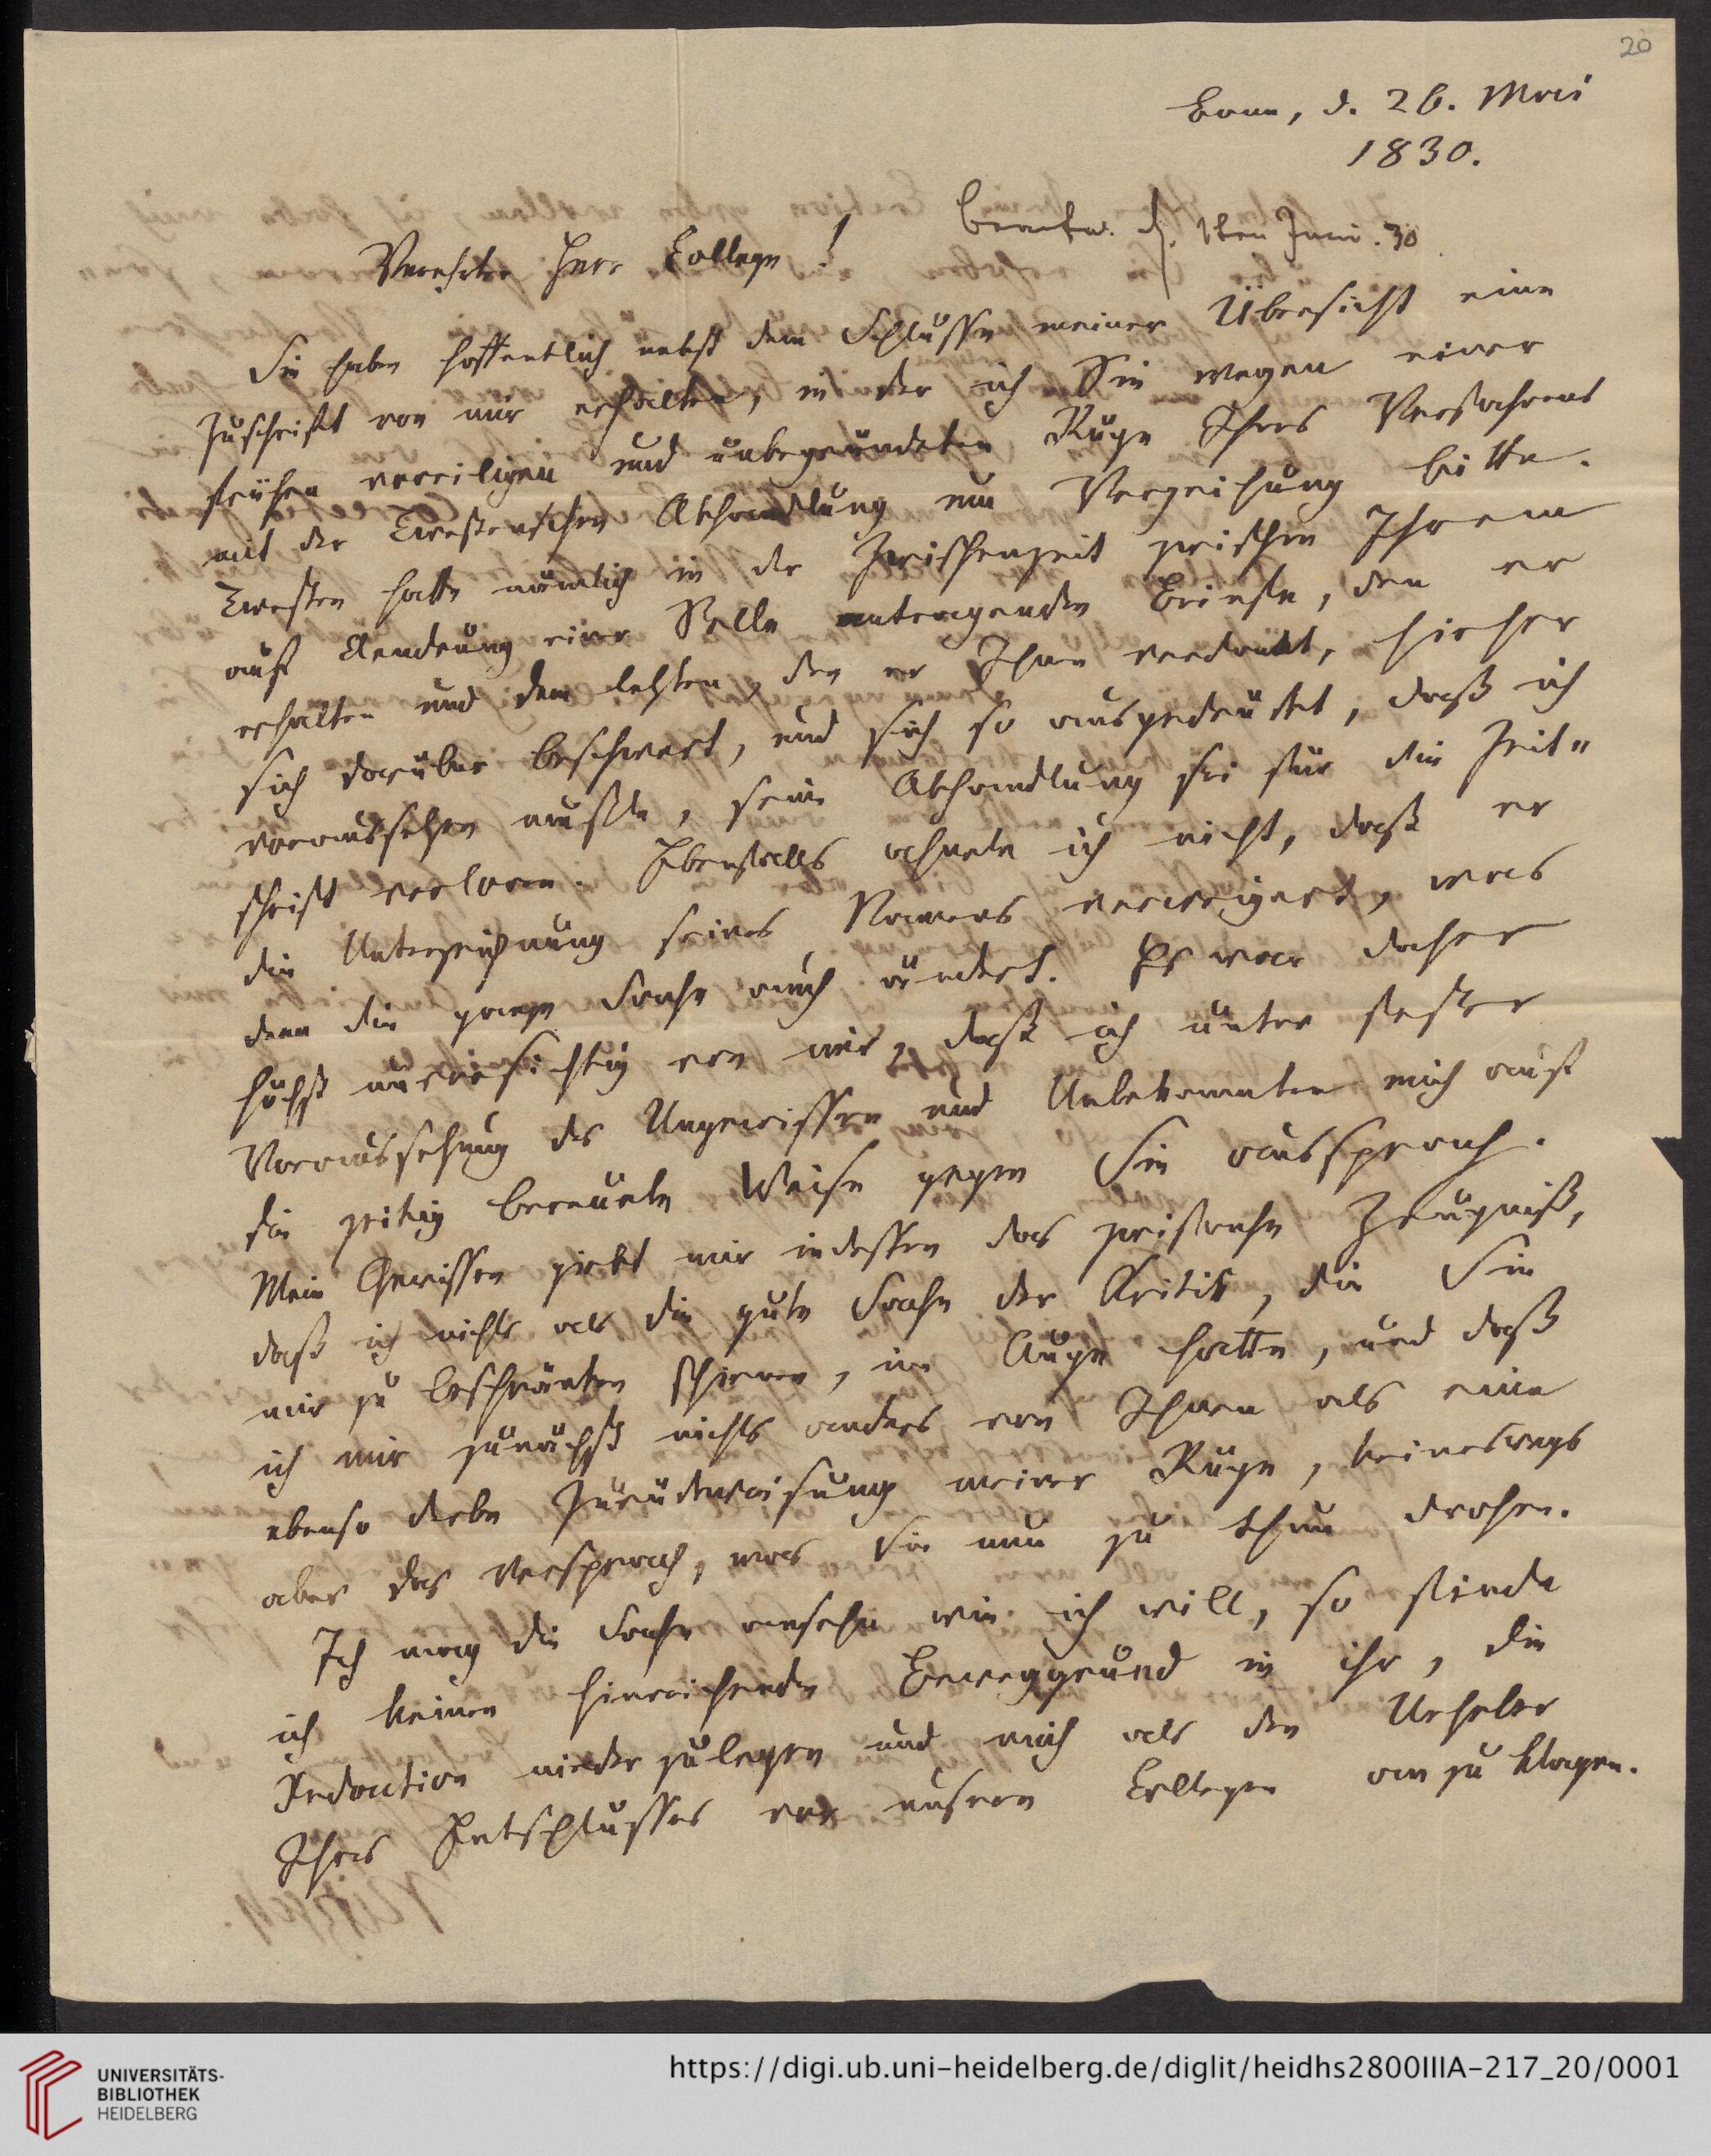 20
Bonn, d. 26. Mai
1830.
beantw. d. 1ten Juni. 30
Verehrter Herr College!
Sie haben hoffentlich nebst dem Schlusse meiner Übersicht eine
Zuschrift von mir erhalten, in der ich Sie wegen einer
frühen voreiligen und unbegründeten Rüge Ihres Verfahrens
mit der Twestenschen Abhandlung um Verzeihung bitte.
Twesten hatte nämlich in der Zwischenzeit zwischen Ihrem
auf Aenderung einer Stelle antragenden Briefe, den er
erhalten und dem letzten, den er Ihnen verdankt, hieher
sich darüber beschwert, und sich so ausgedrückt, daß ich
voraussehen mußte, seine Abhandlung sei für die Zeit-
schrift verloren. Ebenfalls ahnete ich nicht, daß er
die Unterzeichnung seines Namens verweigert, was
denn die ganze Sache auch ändert. Es war daher
höchst unvorsichtig von mir, daß ich unter fester
Voraussetzung des Ungewissen und Unbekannten mich auf
die zeitig bereuete Weise gegen Sie aussprach.
Mein Gewissen giebt mir indessen das Zeugniß,
daß ich nichts als die gute Sache der Kritik, die Sie
mir zu beschränken schienen, im Auge hatte, und daß
ich mir zunächst nichts anders von Ihnen als eine
ebenso derbe Zurückweisung meiner Rüge, keineswegs
aber das versprach, was Sie nun zu thun drohen.
Ich mag die Sache ansehn wie ich will, so finde
ich keinen hinreichenden Beweggrund in ihr, die
Redaction niederzulegen und mich als den Urheber
Ihres Entschlusses vor unsern Collegen anzuklagen.
UNIVERSITÄTS-
BIBLIOTHEK
HEIDELBERG
https://digi.ub.uni-heidelberg.de/diglit/heidhs2800IIIA-217_20/0001